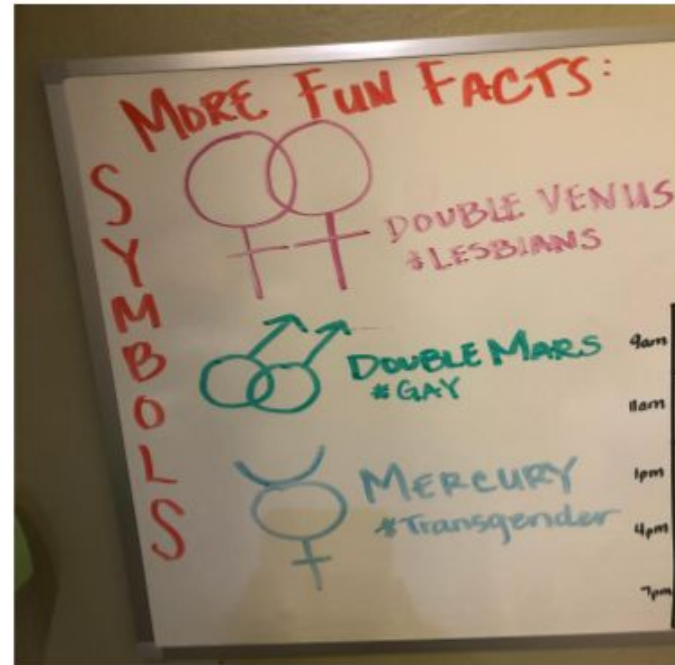 MORE FUN FACTS:
SYMBOLS
DOUBLE VENUS
#LESBIANS
DOUBLE MARS
#GAY
MERCURY
#Transgender
9am
11am
1pm
4pm
7pm